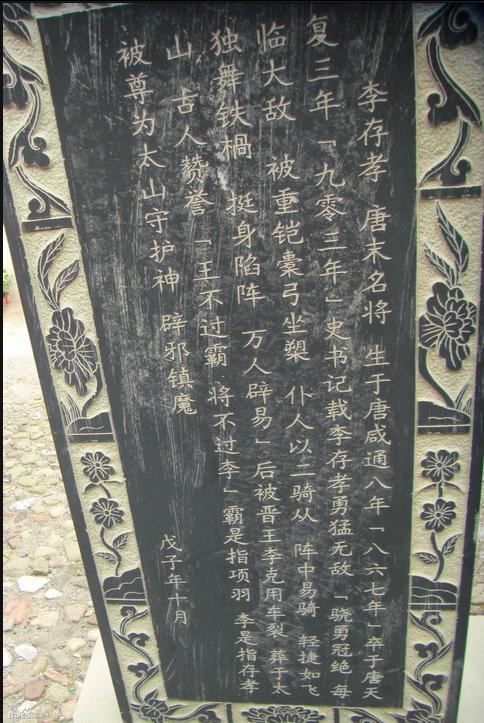 李存孝 唐末名将 生于唐咸通八年「八六七年」卒于唐天
复三年「九零三年」史书记载李存孝勇猛无敌 「骁勇冠绝 每
临大敌 被重铠橐弓坐槊 仆人以二骑从 阵中易骑 轻捷如飞
独舞铁檛 挺身陷阵 万人辟易」后被晋王李克用车裂 葬于太
山 古人赞誉「王不过霸 将不过李」霸是指项羽 李是指存孝
被尊为太山守护神 辟邪镇魔
戊子年十月